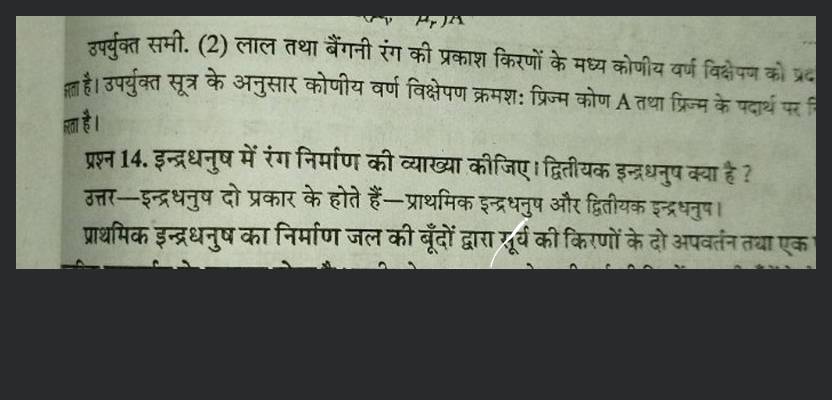 उपर्युक्त समी. (2) लाल तथा बैंगनी रंग की प्रकाश किरणों के मध्य कोणीय वर्ण विक्षेपण को
है। उपर्युक्त सूत्र के अनुसार कोणीय वर्ण विक्षेपण क्रमश: प्रिज्म कोण A तथा प्रिज्म के पदार्थ पर
है।
प्रश्न 14. इन्द्रधनुष में रंग निर्माण की व्याख्या कीजिए। द्वितीयक इन्द्रधनुष क्या है ?
उत्तर—इन्द्रधनुष दो प्रकार के होते हैं—प्राथमिक इन्द्रधनुष और द्वितीयक इन्द्रधनुष।
प्राथमिक इन्द्रधनुष का निर्माण जल की बूँदों द्वारा सूर्य की किरणों के दो अपवर्तन तथा एक